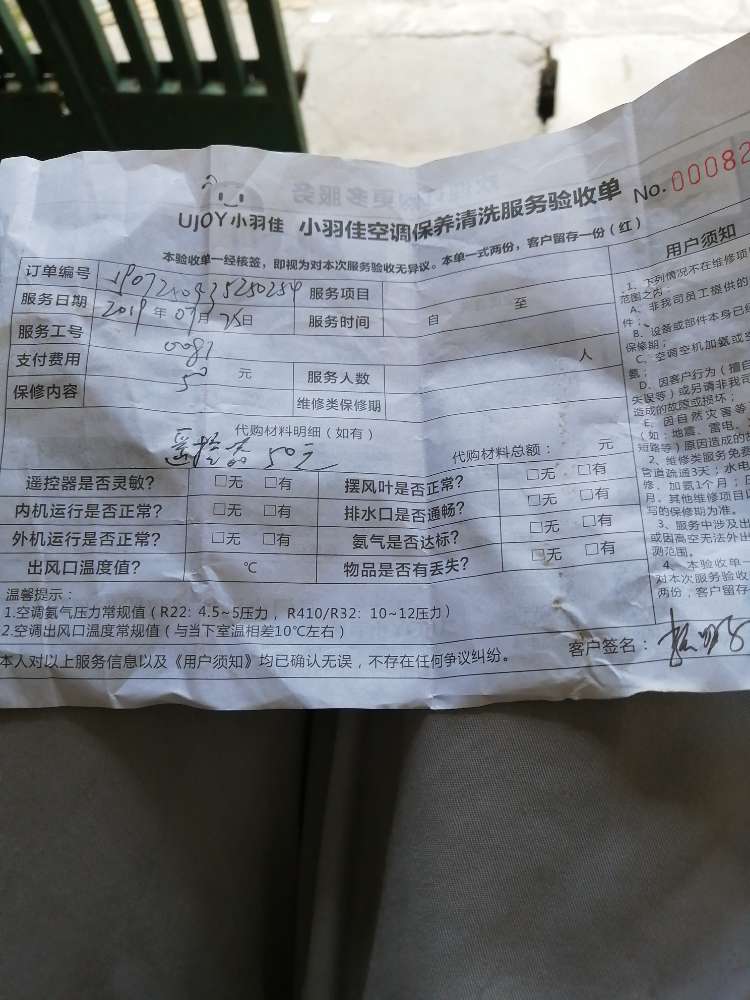 UJOY小羽佳 小羽佳空调保养清洗服务验收单 No.00082
本验收单一经核签，即视为对本次服务验收无异议。本单一式两份，客户留存一份（红）
订单编号 服务项目
服务日期 2019 年 07 月 25 日 服务时间 自 至
服务工号 0081
支付费用 50 元 服务人数 人
保修内容 维修类保修期
代购材料明细（如有） 代购材料总额： 元
遥控器 50元
遥控器是否灵敏？ □无 □有 摆风叶是否正常？ □无 □有
内机运行是否正常？ □无 □有 排水口是否通畅？ □无 □有
外机运行是否正常？ □无 □有 氨气是否达标？ □无 □有
出风口温度值？ ℃ 物品是否有丢失？ □无 □有
温馨提示：
1.空调氨气压力常规值（R22：4.5~5压力，R410/R32：10~12压力）
2.空调出风口温度常规值（与当下室温相差10℃左右）
本人对以上服务信息以及《用户须知》均已确认无误，不存在任何争议纠纷。
客户签名：
用户须知
1、下列情况不在维修项
范围之内：
A、非我司员工提供的
件；
B、设备或部件本身已经
保修期；
C、空调空机加氨或空
氨；
D、因客户行为（擅自
失误等）或另请非我司
造成的故障或损坏；
E、因自然灾害等
（如：地震、雷电、
短路等）原因造成的
2、维修类服务免费
管道疏通3天；水电
修、加氨1个月；
月。其他维修项目
写的保修期为准。
3、服务中涉及出
或因高空无法外出
测范围。
4、本验收单一
对本次服务验收
两份，客户留存